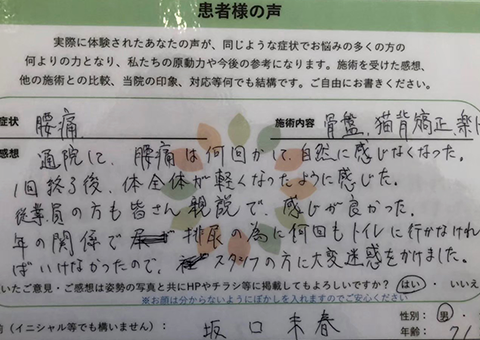 患者様の声
実際に体験されたあなたの声が、同じような症状でお悩みの多くの方の
何よりの力となり、私たちの原動力や今後の参考になります。施術を受けた感想、
他の施術との比較、当院の印象、対応等何でも結構です。ご自由にお書きください。
症状 腰痛 施術内容 骨盤、猫背矯正、楽ト
感想 通院して、腰痛は何回かして、自然に感じなくなった。
1回終了後、体全体が軽くなったように感じた。
従業員の方も皆さん親説で、感じが良かった。
年の関係で 排尿の為に何回もトイレに行かなけれ
ばいけなかったので、 スタッフの方に大変迷惑をかけました。
いたご意見・ご感想は姿勢の写真と共にHPやチラシ等に掲載してもよろしいですか? はい ・ いいえ
※お顔は分からないようにぼかしを入れますのでご安心ください
前(イニシャル等でも構いません): 坂口 末春 性別: 男 ・
年齢: 71